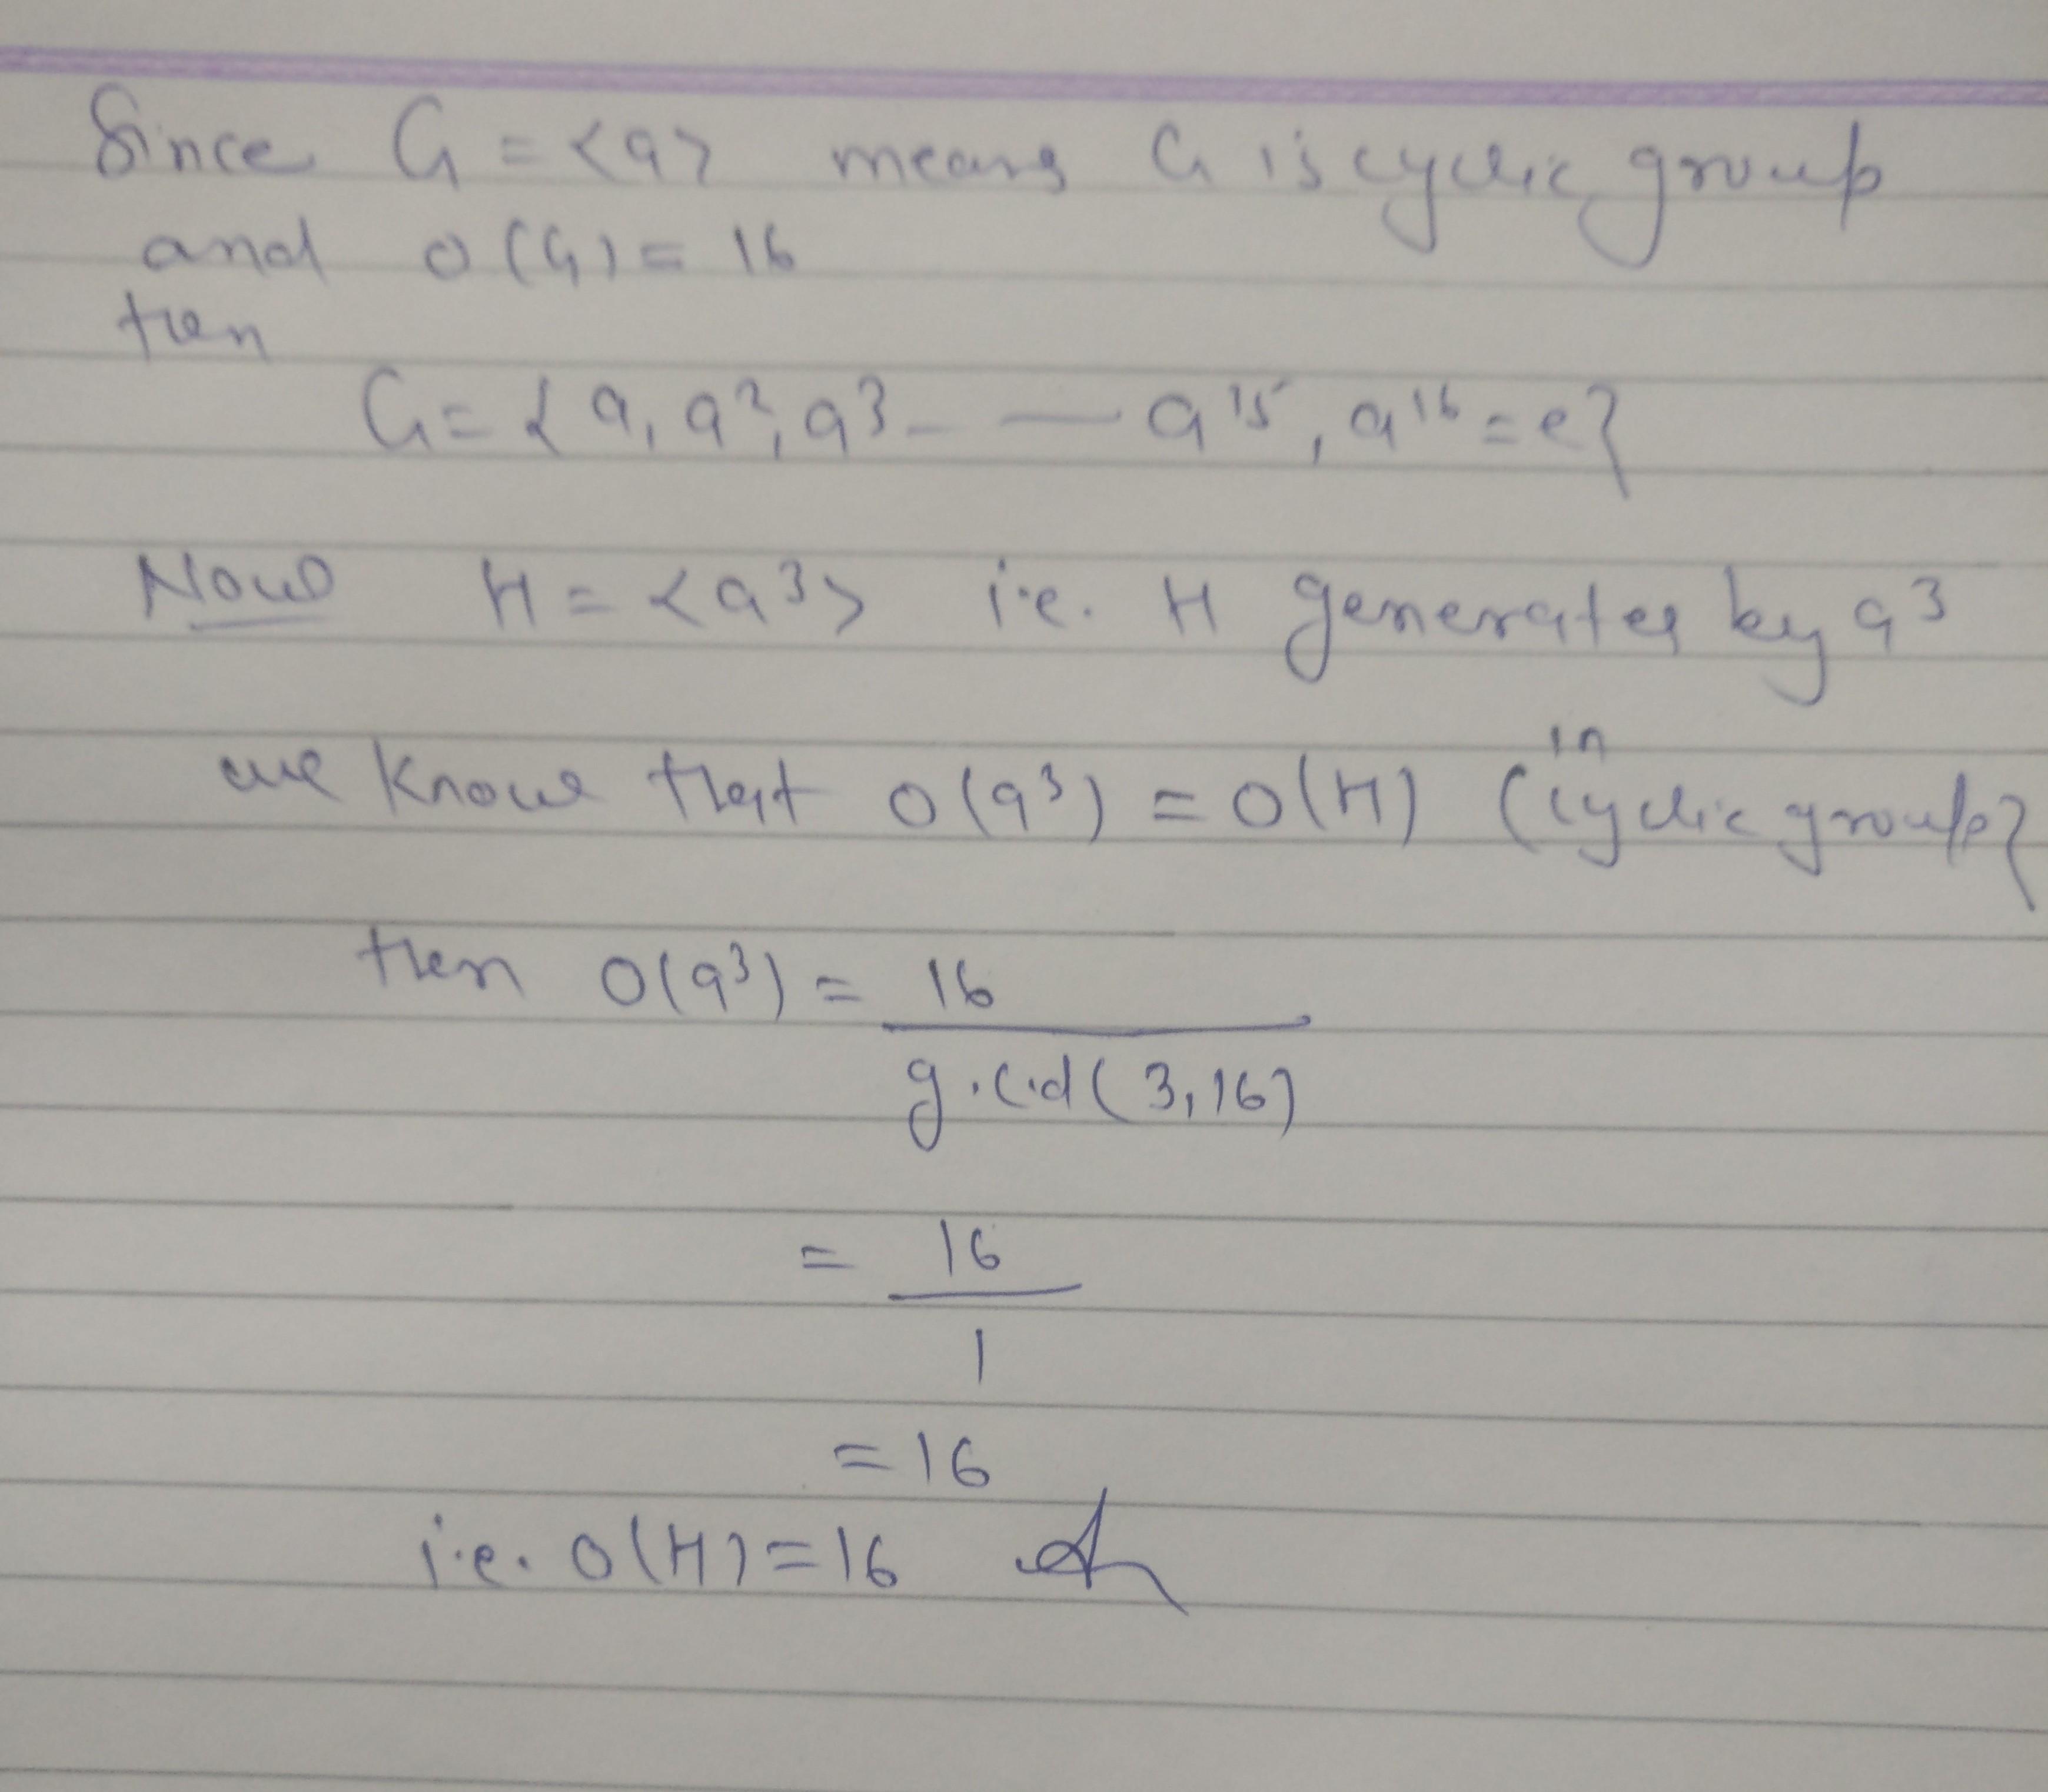 Since G = <a> means G is cyclic group
and o(G) = 16
then
G = { a, a², a³ - — a¹⁵, a¹⁶ = e }
Now H = <a³> i.e. H generates by a³
we know that o(a³) = o(H) (in cyclic group}
then o(a³) = 16
g.c.d (3, 16)
= 16
1
= 16
i.e. o(H) = 16